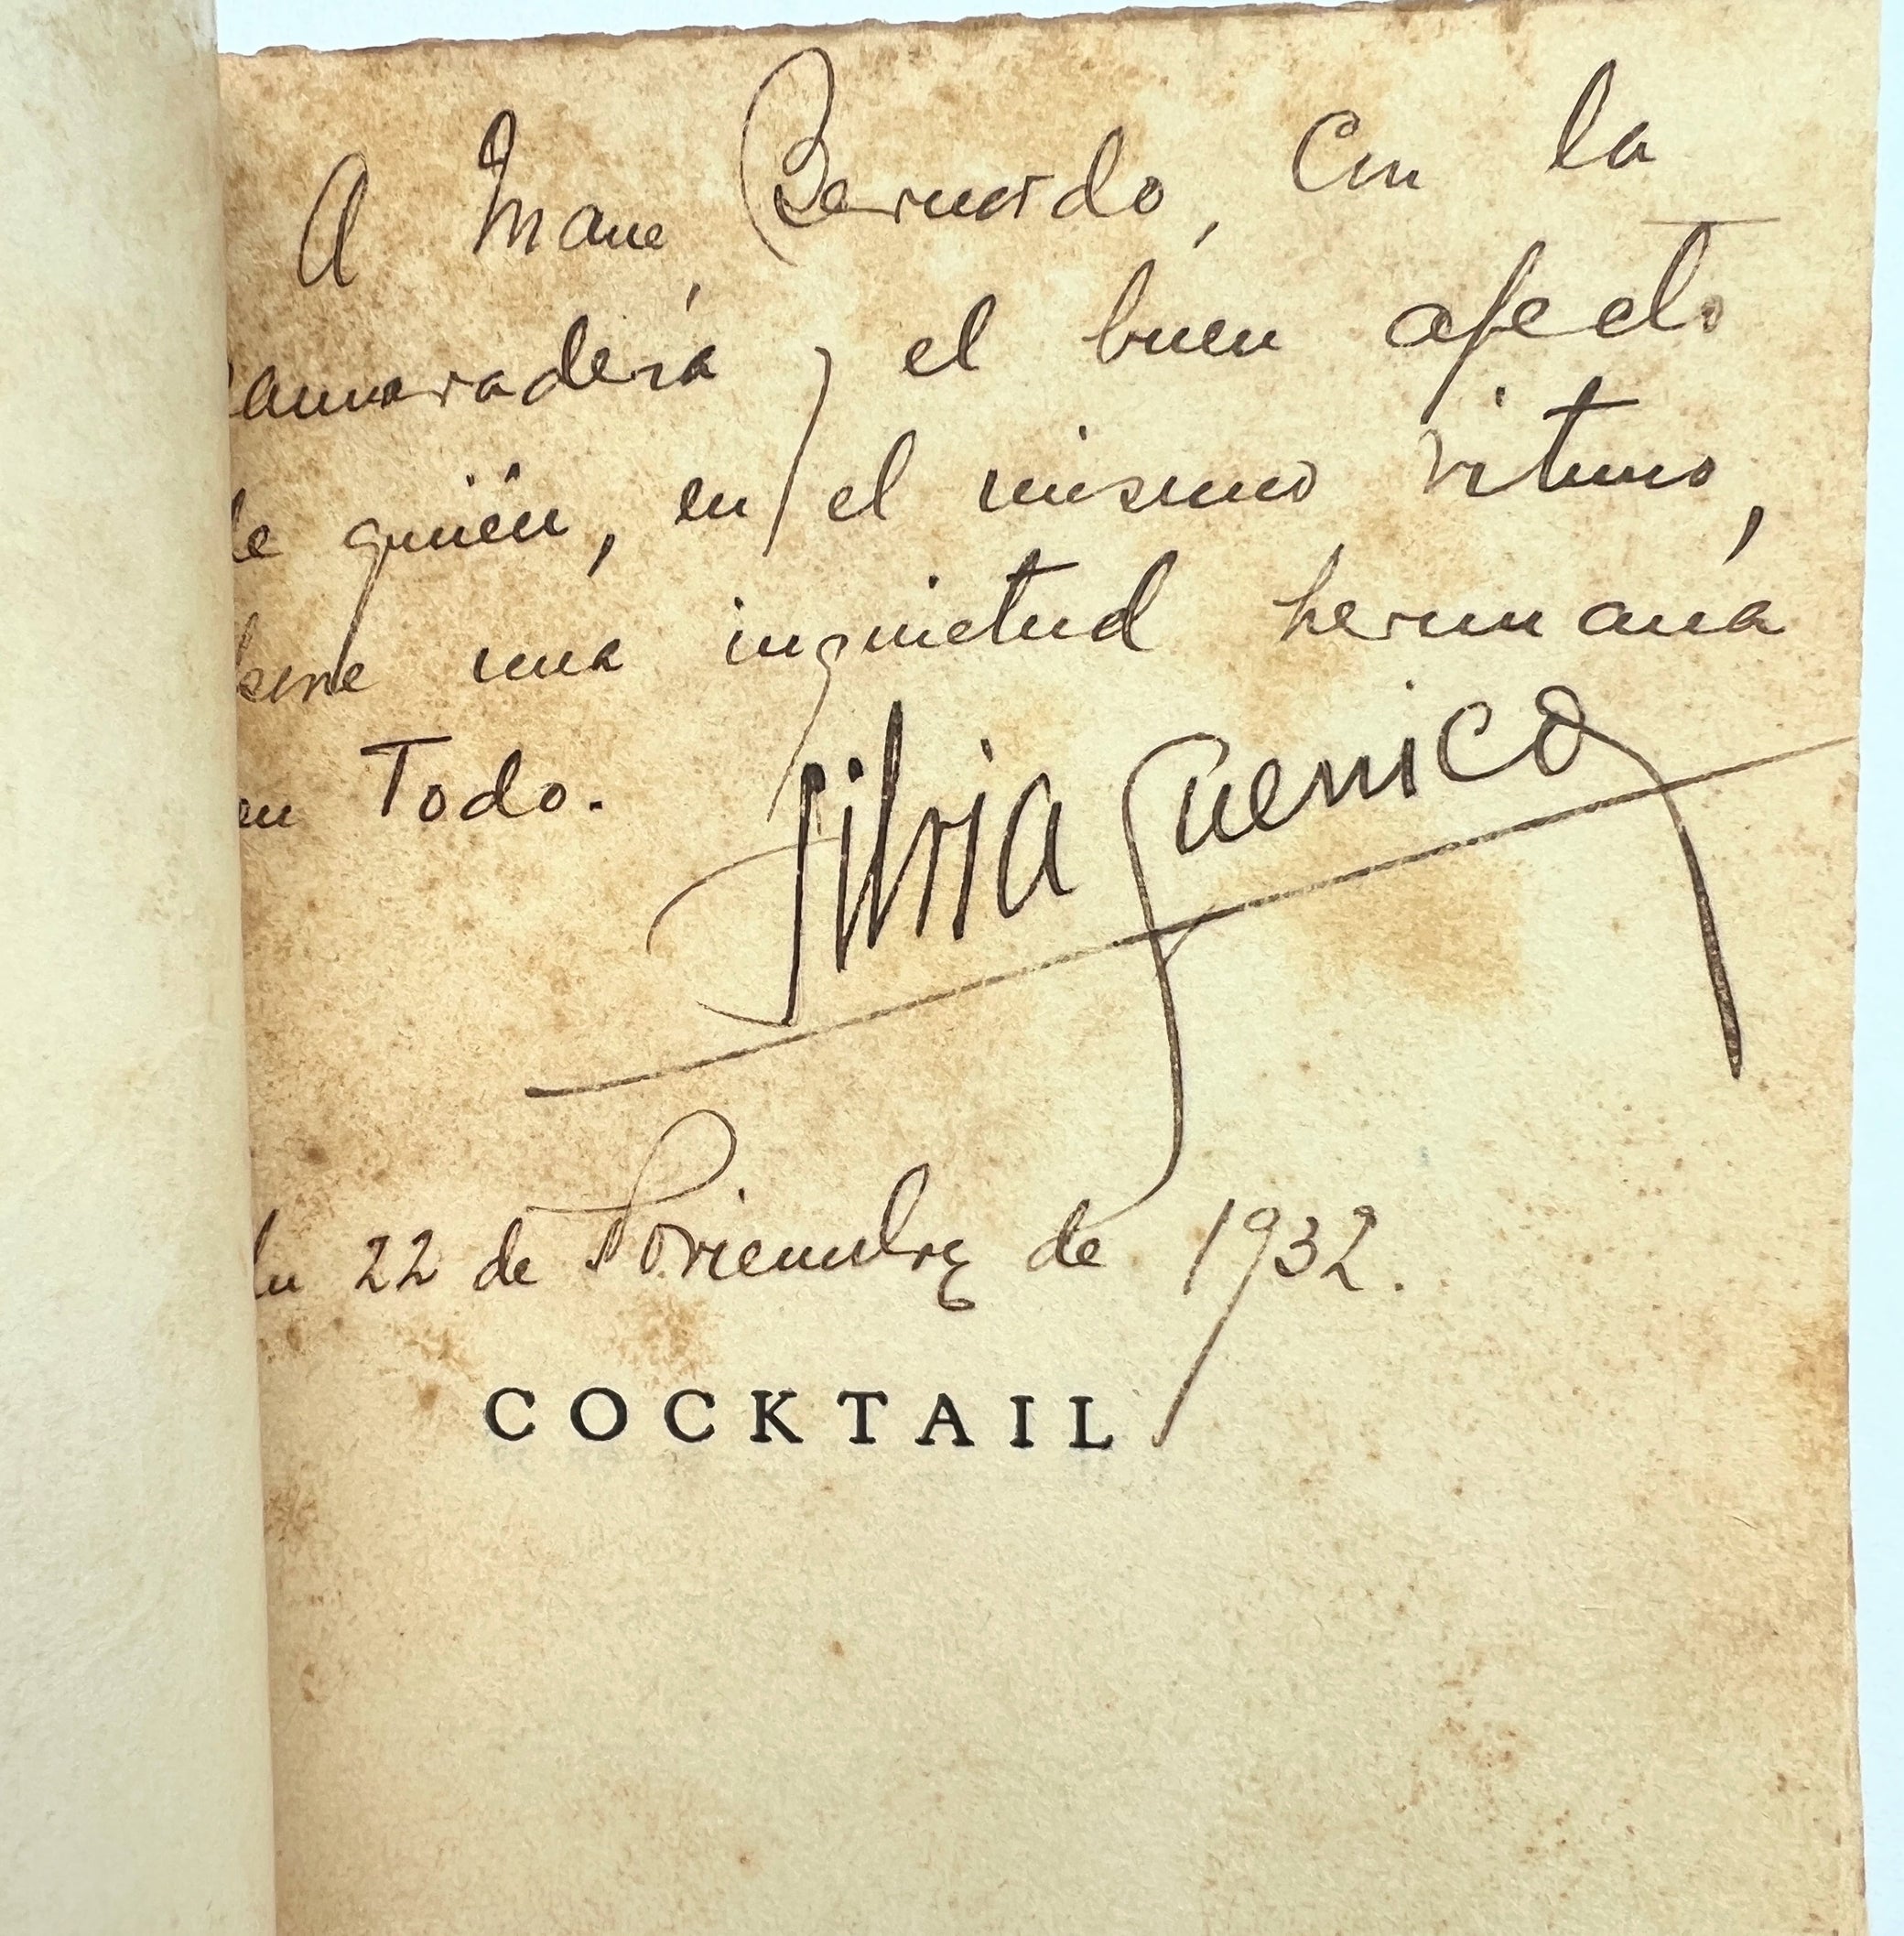 A Mane Bernardo, con la
camaradería y el buen afecto
de quién, en el mismo ritmo,
tiene una inquietud hermana
en Todo. Silvia Guerrico
22 de Noviembre de 1932.
COCKTAIL